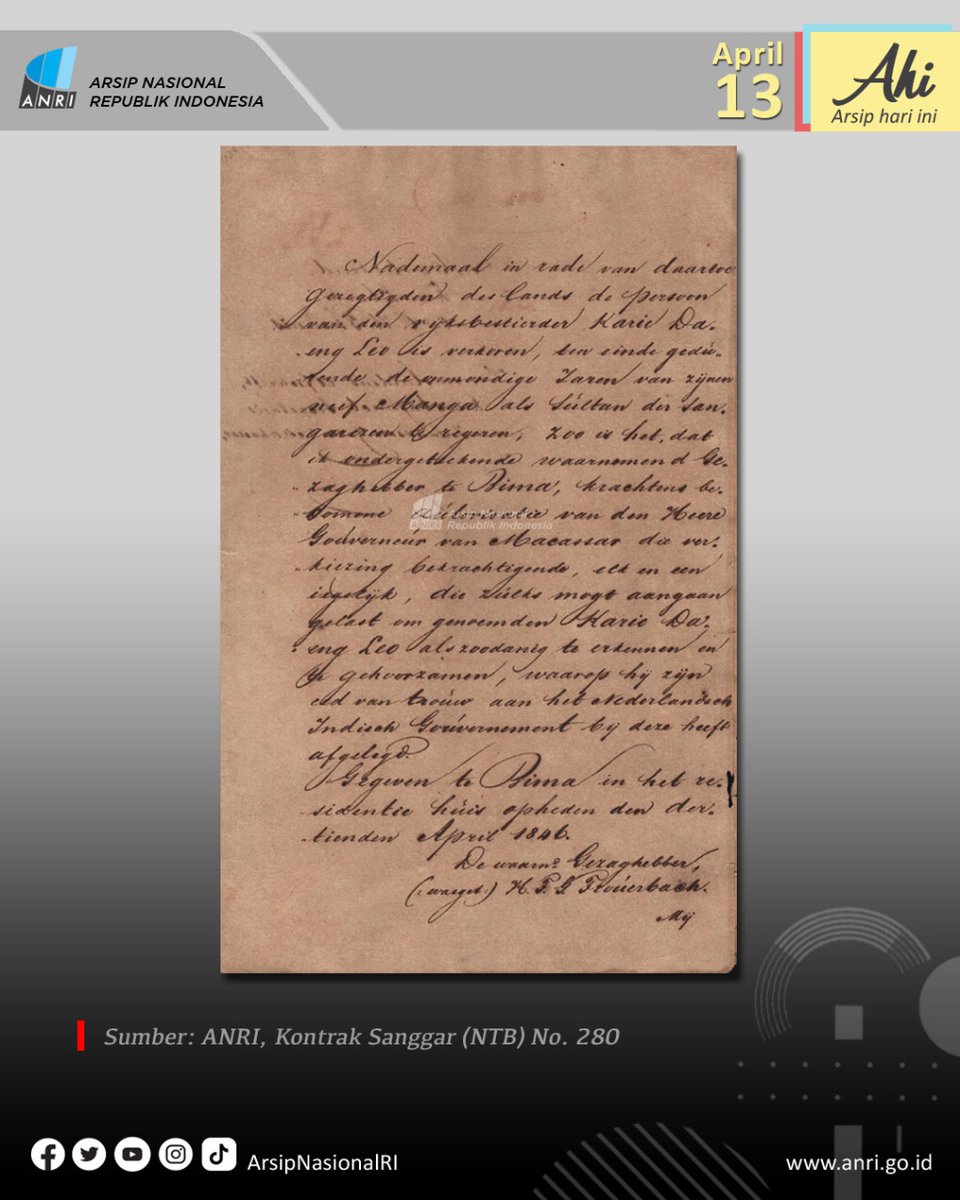 ANRI
ARSIP NASIONAL
REPUBLIK INDONESIA
April
13
Ahi
Arsip hari ini
Nademaal in rade van daartoe
Geregtigden des Lands de persoon
van den rijksbestierder Karie Da-
eng Leo is verkoren, ten einde gedú-
rende de onmondige Jaren van zijnen
neef Manga als Súltan der San-
garezen te regeren, zoo is het, dat
ik ondergeteekende waarnemend Ge-
zaghebber te Bima, krachtens be-
komene van den Heere
Goúverneúr van Macassar die ver-
kiezing bekrachtigende, elk en een
iegelijk, die zúlks mogt aangaan
gelast om genoemden Karie Da-
eng Leo alszoodanig te erkennen en
te gehoorzamen, waarop hij zijn
eed van troúw aan het Nederlandsch
Indisch Goúvernement bij deze heeft
afgelegd.
Gegeven te Bima in het re-
sidentie húis opheden den der-
tienden April 1846.
De waarn: Gezaghebber,
(: wasget:) H. F.
Mij
ANRI
Arsip Nasional
Republik Indonesia
Sumber: ANRI, Kontrak Sanggar (NTB) No. 280
ArsipNasionalRI
www.anri.go.id